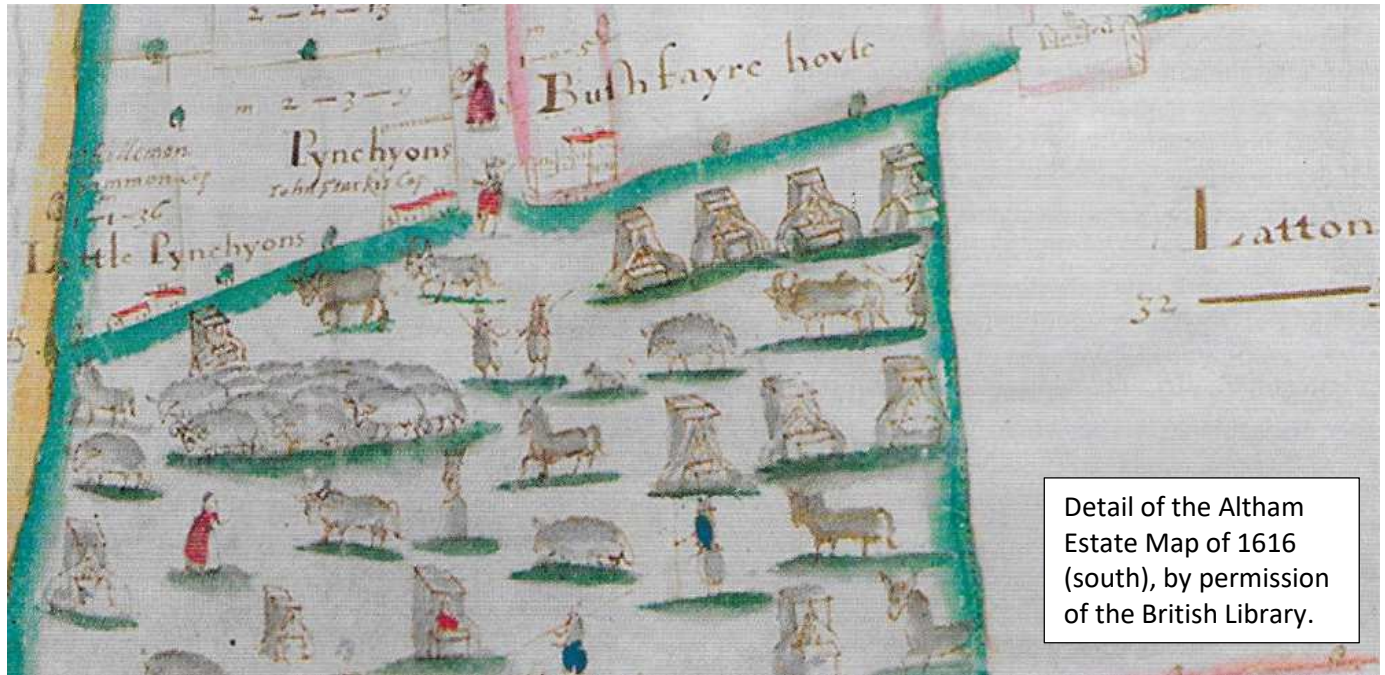 2 – 2 – 13
m
1 – 0 – 5
Bush fayre howse
m 2 – 3 – 9
Pynchyons
John Starkis Cop
1 – 36
Little Pynchyons
Latton
32
Detail of the Altham
Estate Map of 1616
(south), by permission
of the British Library.